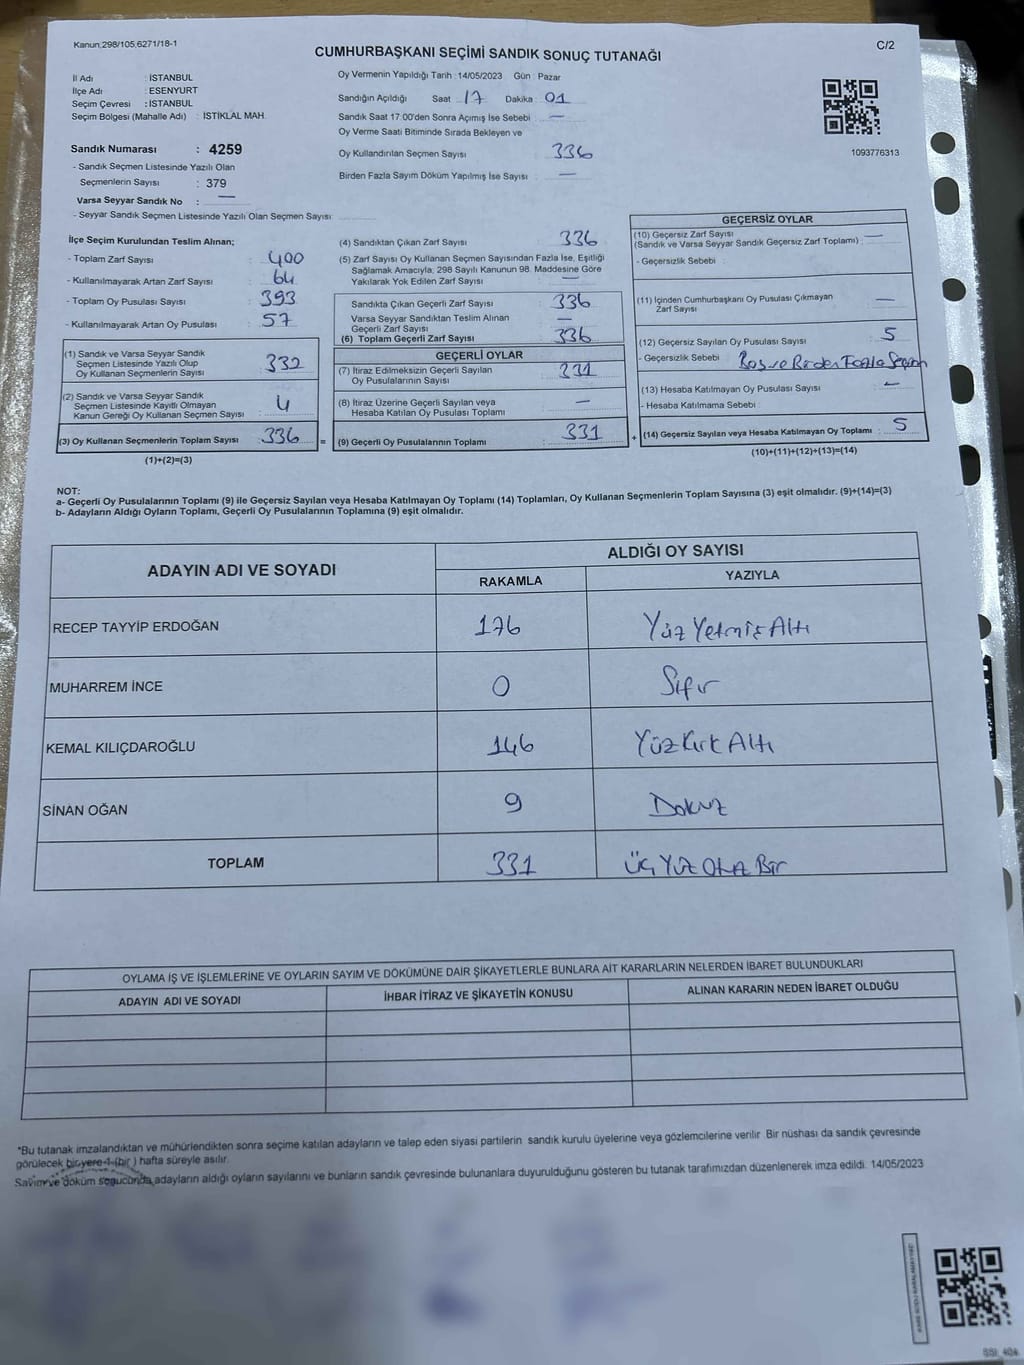 Kanun;298/105;6271/18-1
C/2
CUMHURBAŞKANI SEÇİMİ SANDIK SONUÇ TUTANAĞI
İl Adı : İSTANBUL
İlçe Adı : ESENYURT
Seçim Çevresi : İSTANBUL
Seçim Bölgesi (Mahalle Adı) : İSTİKLAL MAH.
Sandık Numarası : 4259
- Sandık Seçmen Listesinde Yazılı Olan
Seçmenlerin Sayısı : 379
Varsa Seyyar Sandık No : —
- Seyyar Sandık Seçmen Listesinde Yazılı Olan Seçmen Sayısı:
Oy Vermenin Yapıldığı Tarih :14/05/2023 Gün : Pazar
Sandığın Açıldığı Saat 17 Dakika : 01
Sandık Saat 17:00'den Sonra Açılmış İse Sebebi : —
Oy Verme Saati Bitiminde Sırada Bekleyen ve
Oy Kullandırılan Seçmen Sayısı : 336
Birden Fazla Sayım Döküm Yapılmış İse Sayısı : —
1093776313
İlçe Seçim Kurulundan Teslim Alınan;
- Toplam Zarf Sayısı : 400
- Kullanılmayarak Artan Zarf Sayısı : 64
- Toplam Oy Pusulası Sayısı : 393
- Kullanılmayarak Artan Oy Pusulası : 57
(1) Sandık ve Varsa Seyyar Sandık
Seçmen Listesinde Yazılı Olup
Oy Kullanan Seçmenlerin Sayısı : 332
(2) Sandık ve Varsa Seyyar Sandık
Seçmen Listesinde Kayıtlı Olmayan
Kanun Gereği Oy Kullanan Seçmen Sayısı : 4
(3) Oy Kullanan Seçmenlerin Toplam Sayısı : 336 =
(1)+(2)=(3)
(4) Sandıktan Çıkan Zarf Sayısı : 336
(5) Zarf Sayısı Oy Kullanan Seçmen Sayısından Fazla İse, Eşitliği
Sağlamak Amacıyla; 298 Sayılı Kanunun 98. Maddesine Göre
Yakılarak Yok Edilen Zarf Sayısı : —
Sandıkta Çıkan Geçerli Zarf Sayısı : 336
Varsa Seyyar Sandıktan Teslim Alınan
Geçerli Zarf Sayısı : —
(6) Toplam Geçerli Zarf Sayısı : 336
GEÇERLİ OYLAR
(7) İtiraz Edilmeksizin Geçerli Sayılan
Oy Pusulalarının Sayısı : 331
(8) İtiraz Üzerine Geçerli Sayılan veya
Hesaba Katılan Oy Pusulası Toplamı : —
(9) Geçerli Oy Pusulalarının Toplamı : 331 +
GEÇERSİZ OYLAR
(10) Geçersiz Zarf Sayısı
(Sandık ve Varsa Seyyar Sandık Geçersiz Zarf Toplamı) : —
- Geçersizlik Sebebi :
(11) İçinden Cumhurbaşkanı Oy Pusulası Çıkmayan
Zarf Sayısı : —
(12) Geçersiz Sayılan Oy Pusulası Sayısı : 5
- Geçersizlik Sebebi : Boş ve Birden Fazla Seçim
(13) Hesaba Katılmayan Oy Pusulası Sayısı : —
- Hesaba Katılmama Sebebi :
(14) Geçersiz Sayılan veya Hesaba Katılmayan Oy Toplamı : 5
(10)+(11)+(12)+(13)=(14)
NOT:
a- Geçerli Oy Pusulalarının Toplamı (9) ile Geçersiz Sayılan veya Hesaba Katılmayan Oy Toplamı (14) Toplamları, Oy Kullanan Seçmenlerin Toplam Sayısına (3) eşit olmalıdır. (9)+(14)=(3)
b- Adayların Aldığı Oyların Toplamı, Geçerli Oy Pusulalarının Toplamına (9) eşit olmalıdır.
ADAYIN ADI VE SOYADI
ALDIĞI OY SAYISI
RAKAMLA YAZIYLA
RECEP TAYYİP ERDOĞAN 176 Yüz Yetmiş Altı
MUHARREM İNCE 0 Sıfır
KEMAL KILIÇDAROĞLU 146 Yüz Kırk Altı
SİNAN OĞAN 9 Dokuz
TOPLAM 331 Üç Yüz Otuz Bir
OYLAMA İŞ VE İŞLEMLERİNE VE OYLARIN SAYIM VE DÖKÜMÜNE DAİR ŞİKAYETLERLE BUNLARA AİT KARARLARIN NELERDEN İBARET BULUNDUKLARI
ADAYIN ADI VE SOYADI İHBAR İTİRAZ VE ŞİKAYETİN KONUSU ALINAN KARARIN NEDEN İBARET OLDUĞU
*Bu tutanak imzalandıktan ve mühürlendikten sonra seçime katılan adayların ve talep eden siyasi partilerin sandık kurulu üyelerine veya gözlemcilerine verilir. Bir nüshası da sandık çevresinde
görülecek bir yere 1 (bir ) hafta süreyle asılır.
Sayım ve döküm sonucunda adayların aldığı oyların sayılarını ve bunların sandık çevresinde bulunanlara duyurulduğunu gösteren bu tutanak tarafımızdan düzenlenerek imza edildi. 14/05/2023